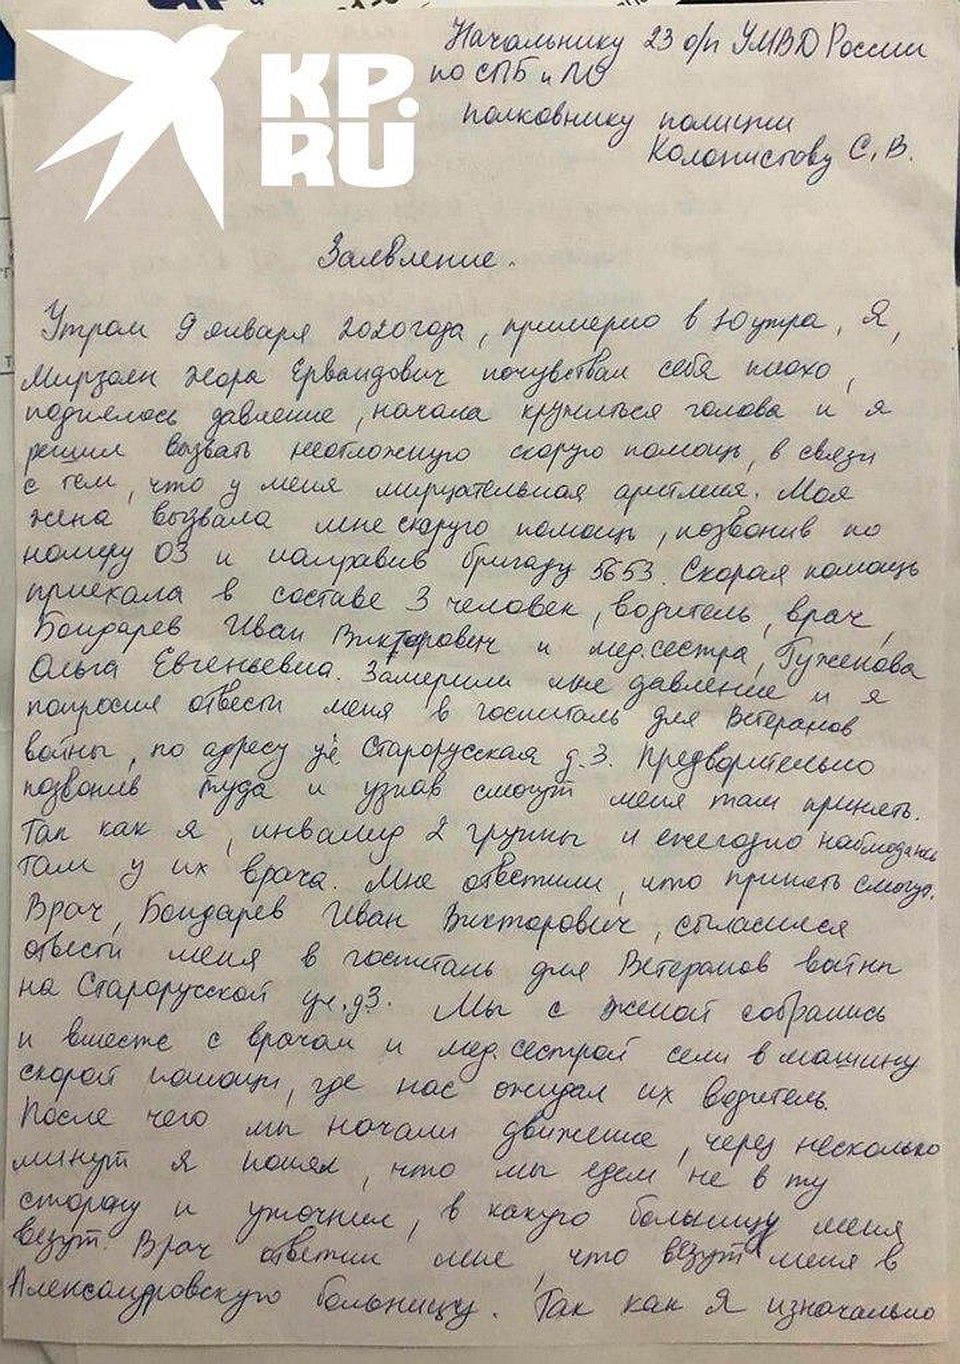 KP.
RU
Начальнику 23 о/п УМВД России
по СПБ и ЛО
полковнику полиции
Колонистову С. В.
Заявление.
Утром 9 января 2020 года, примерно в 10 утра, Я,
Мирзоян Жора Ервандович почувствал себя плохо,
поднялось давление, начала кружиться голова и я
решил вызвать неотложную скорую помощь, в связи
с тем, что у меня мирцательная аритмия. Моя
жена вызвала мне скорую помощь, позвонив по
номеру 03 и направив бригаду 5653. Скорая помощь
приехала в составе 3 человек, водитель, врач,
Бондарев Иван Викторович и мед.сестра, Гуженкова
Ольга Евгеньевна. Замерили мне давление и я
попросил отвести меня в госпиталь для Ветеранов
войны, по адресу ул Старорусская д.3. Предворительно
позвонив туда и узнав смогут меня там принять.
Так как я, инвалид 2 группы и ежегодно наблюдаюсь
там у их врача. Мне ответили, что принять смогут.
Врач, Бондарев Иван Викторович, согласился
отвести меня в госпиталь для Ветеранов войны
на Старорусской ул.д3. Мы с женой собрались
и вместе с врачом и мед.сестрой сели в машину
скорой помощи, где нас ожидал их водитель.
После чего мы начали движение, через несколько
минут я понял, что мы едем не в ту
сторону и уточнил, в какую больницу меня
везут. Врач ответил мне, что везут меня в
Александровскую больницу. Так как Я изначально